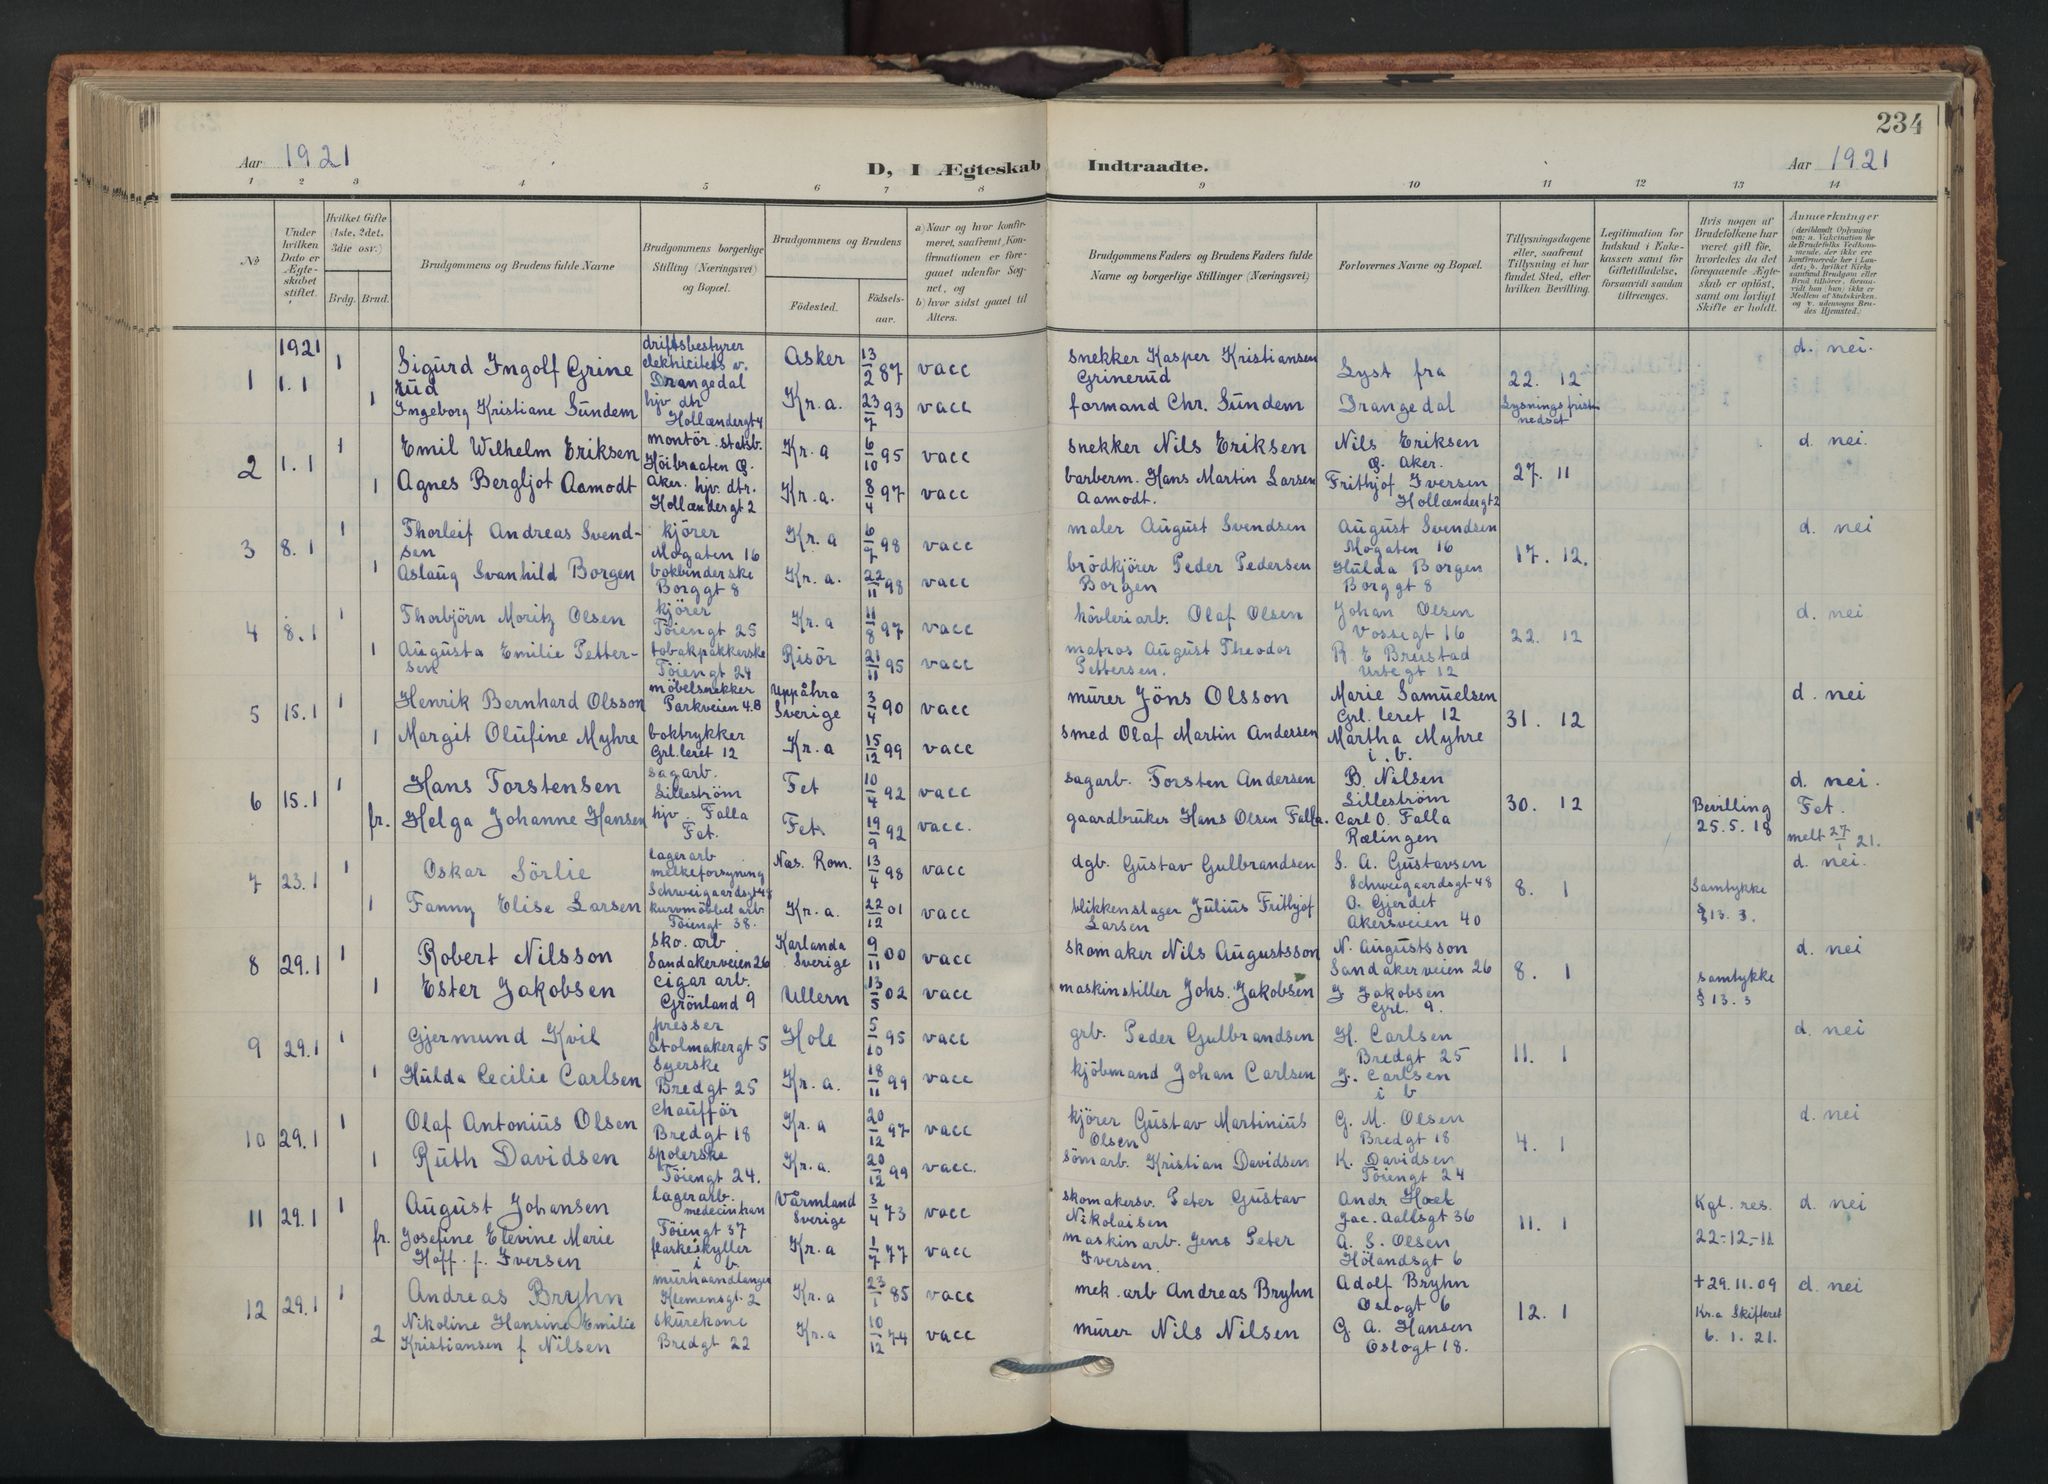 234
Aar 1921
D, I Ægteskab Indtraadte.
Aar 1921
1 2 3 4 5 6 7 8 9 10 11 12 13 14
No
Under hvilken Dato er Ægteskabet stiftet.
Hvilket Gifte (1ste, 2det, 3die osv.)
Brdg. Brud.
Brudgommens og Brudens fulde Navne
Brudgommens borgerlige Stilling (Næringsvei) og Bopæl.
Brudgommens og Brudens
Fødested. Fødselsaar.
a) Naar og hvor konfirmeret, saafremt Konfirmationen er foregaaet udenfor Sognet, og
b) hvor sidst gaaet til Alters.
Brudgommens Faders og Brudens Faders fulde Navne og borgerlige Stillinger (Næringsvei)
Forlovernes Navne og Bopæl.
Tillysningsdagene eller, saafremt Tillysning ei har fundet Sted, efter hvilken Bevilling.
Legitimation for Indskud i Enkekassen samt for Giftetilladelse, forsaavidt saadan tiltrænges.
Hvis nogen af Brudefolkene har været gift før, hvorledes da det foregaaende Ægteskab er opløst, samt om lovligt Skifte er holdt.
Anmerkninger
(deriblandt Oplysning om: a. Vakcination for de Brudefolks Vedkommende, der ikke ere konfirmerede her i Landet; b. hvilket Kirkesamfund Brudgom eller Brud tilhører, forsaavidt han (hun) ikke er Medlem af Statskirken, og c. udensogns Brudes Hjemsted.)
1921
1 1.1 1 Sigurd Ingolf Grinerud driftsbestyrer elektricitets v. Drangedal Asker 13/2 87 vacc snekker Kasper Kristiansen Grinerud Lyst fra 22. 12 d. nei.
1 Ingeborg Kristiane Sundem hjv dtr Hollændergt 4 Kr.a. 23/7 93 vacc formand Chr. Sundem Drangedal Lysnings frist nedsat
2 1.1 1 Emil Wilhelm Eriksen montör statsb. Höibraaten Ö. Aker. Kr.a 6/10 95 vacc snekker Nils Eriksen Nils Eriksen Ö. Aker. 27. 11 d. nei.
1 Agnes Bergljot Aamodt hjv. dtr. Hollændergt 2 Kr.a. 8/4 97 vacc barberm. Hans Martin Larsen Aamodt. Frithjof Iversen Hollændergt 2
3 8.1 1 Thorleif Andreas Svendsen kjörer Mogaten 16 Kr.a 6/9 98 vacc maler August Svendsen August Svendsen Mogaten 16 17. 12. d. nei
1 Aslaug Svanhild Borgen bokbinderske Borggt 8 Kr.a. 22/11 98 vacc brödkjörer Peder Pedersen Borgen Hulda Borgen Borggt 8
4 8.1 1 Thorbjörn Moritz Olsen kjörer Töiengt 25 Kr.a 11/8 97 vacc hövleriarb. Olaf Olsen Johan Olsen Vossegt 16 22. 12 d. nei
1 Augusta Emilie Pettersen tobakpakkerske Töiengt 24 Risör 21/11 95 vacc matros August Theodor Pettersen. R. E Brustad Urtegt 12
5 15.1 1 Henrik Bernhard Olsson möbelsnekker Parkveien 4.B Uppåhra Sverige 3/4 90 vacc murer Jöns Olsson Marie Samuelsen Grl. leret 12 31. 12 d. nei
1 Margit Olufine Myhre boktrykker Grl. leret 12 Kr.a 15/12 99 vacc smed Olaf Martin Andersen Martha Myhre i. b.
6 15.1 1 Hans Torstensen sagarb. Lilleström Fet 10/4 92 vacc sagarb. Torsten Andersen B. Nilsen Lilleström 30. 12 Bevilling 25.5.18 d. nei.
fr. Helga Johanne Hansen hjv. Falla Fet. Fet. 19/9 92 vacc. gaardbruker Hans Olsen Falla. Carl O. Falla Rælingen Fet. melt 27/1 21.
7 23.1 1 Oskar Sörlie lagerarb melkeforsyning Schweigaardsgt 48 Næs. Rom. 13/4 98 vacc dgb. Gustav Gulbrandsen S. A. Gustavsen Schweigaardsgt 48 8. 1 d. nei.
1 Fanny Elise Larsen kurvmöbbel arb Töiengt 38. Kr.a. 22/12 01 vacc blikkenslager Julius Frithjof Larsen O. Gjerdet Akersveien 40 Samtykke § 13. 3.
8 29.1 1 Robert Nilsson sko. arb Sandakerveien 26 Karlanda Sverige 9/11 00 vacc skomaker Nils Augustsson N. Augustsson Sandakerveien 26 8. 1 d. nei
1 Ester Jakobsen cigar arb. Grönland 9 Ullern 13/5 02 vacc maskinstiller Johs. Jakobsen J. Jakobsen Grl. 9. samtykke § 13. 3
9 29.1 1 Gjermund Kvil presser Stolmakergt 5 Hole 5/10 95 vacc grb. Peder Gulbrandsen H. Carlsen Bredgt 25 11. 1 d. nei
1 Hulda Cecilie Carlsen Syerske Bredgt 25 Kr.a. 18/11 99 vacc kjöbmand Johan Carlsen J. Carlsen i b
10 29.1 1 Olaf Antonius Olsen Chaufför Bredgt 18 Kr.a 20/12 97 vacc kjörer Gustav Martinius Olsen G. M. Olsen Bredgt 18 4. 1 d. nei
1 Ruth Davidsen spolerske Töiengt 24. Kr.a. 20/12 99 vacc. sömarb. Kristian Davidsen K. Davidsen Töiengt 24
11 29.1 1 August Johansen lagerarb. medecinhan Töiengt 37 Vårmland Sverige 3/4 73 vacc skomakersv. Peter Gustav Nikolaisen Andr Hoel Jac. Aallsgt 36 11. 1 Kgl. res. d. nei
fr. Josefine Elevine Marie Hoff f. Iversen flaskeskyller i b. Kr.a 1/7 77 vacc maskinarb. Jens Peter Iversen. A. S. Olsen Hölandsgt 6 22-12.-11.
12 29.1 1 Andreas Bryhn murhaandlanger Klemensgt. 2 Kr.a 23/1 85 vacc mek. arb Andreas Bryhn Adolf Bryhn Oslogt 6 12. 1 + 29.11.09 d. nei
2 Nikoline Hansine Emilie Kristiansen f Nilsen skurekone Bredgt 22 Kr.a 10/12 74 vacc murer Nils Nilsen G A. Hansen Oslogt 18. Kr.a Skifteret 6.1.21.